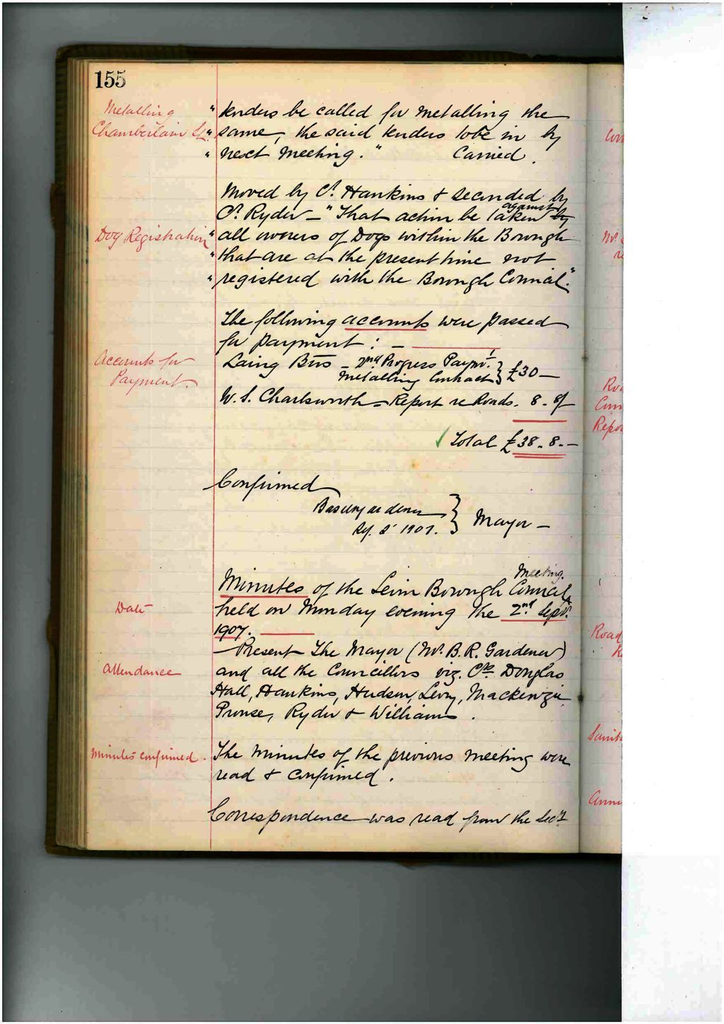 155
Metalling
Chamberlain St.
" tenders be called for metalling the
" same, the said tenders to be in by
" next meeting." Carried.
Moved by Cr. Hawkins & seconded by
Cr. Ryder – "That action be taken by
against
Dog Registration
" all owners of Dogs within the Borough
" that are at the present time not
" registered with the Borough Council."
The following accounts were passed
for payment : –
Accounts for
Payment.
Laing Bros – 2nd Progress Paymt.
Metalling Contract } £30 –
W. S. Charlsworth – Report re Roads. 8. –
Total £38. 8. –
Confirmed
} Mayor –
1907.
Minutes of the Levin Borough Council
Meeting.
Date
held on Monday evening the 2nd Sept.
1907.
Present The Mayor (Mr. B. R. Gardener)
Attendance
and all the Councillors viz. Crs. Douglas
Hall, Hawkins, Hudson, Levy, Mackenzie
Prouse, Ryder & Williams.
Minutes confirmed.
The Minutes of the previous meeting were
read & confirmed.
Correspondence was read from the Secy.